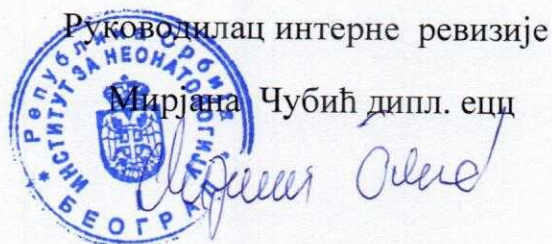 Руководилац интерне ревизије
Мирјана Чубић дипл. ецц
Република Србија
ИНСТИТУТ ЗА НЕОНАТОЛОГИЈУ
* БЕОГРАД